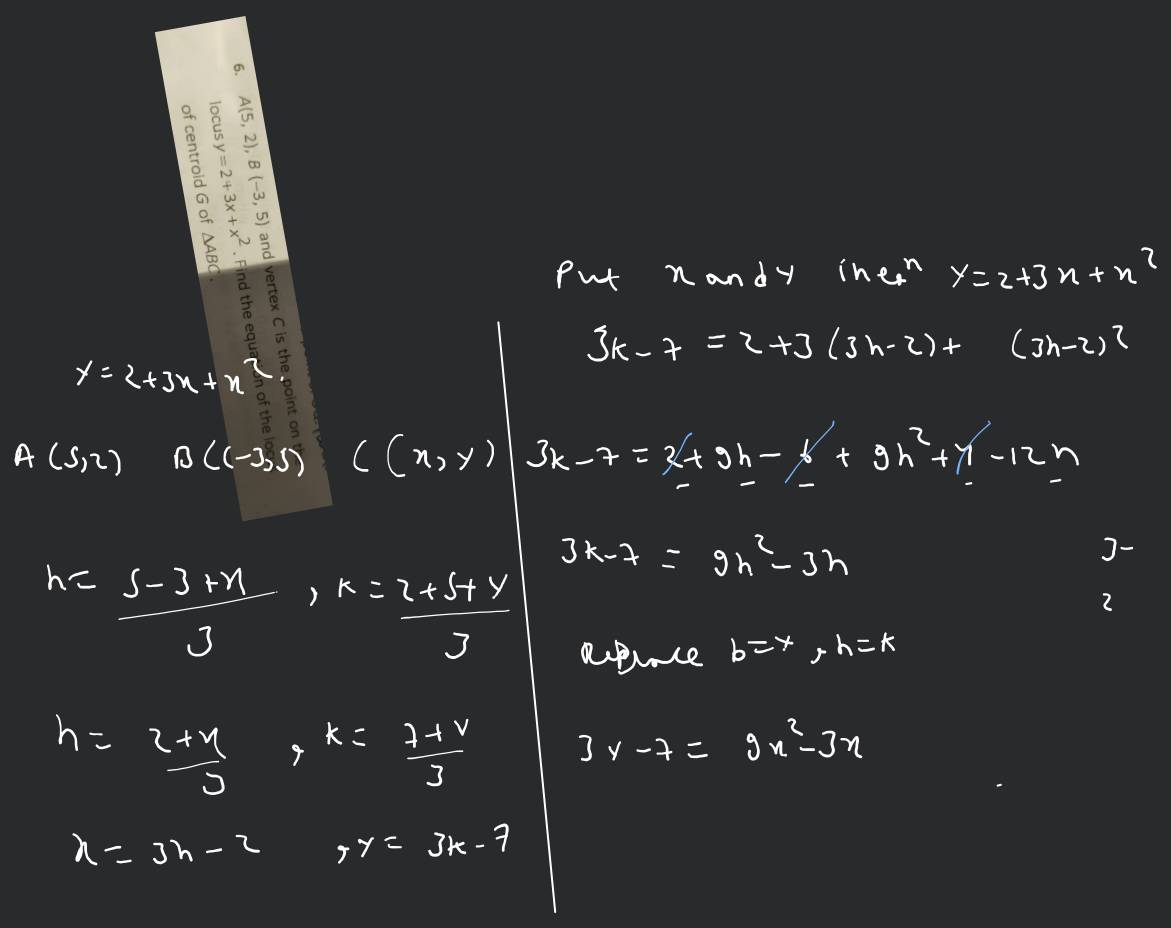 6. A(5, 2), B (−3, 5) and vertex C is the point on
locus y = 2 + 3x + x². Find the equation of the
of centroid G of △ABC.
y = 2+3x+x².
A (5,2) B((-3,5) C (x,y)
h = 5-3+x/3 , k = 2+5+y/3
h = 2+x/3 , k = 7+y/3
x = 3h-2 , y = 3k-7
Put x and y in eqn y=2+3x+x²
3k-7 = 2+3(3h-2)+ (3h-2)²
3k-7 = 2+9h-6+9h²+4-12h
3k-7 = 9h²-3h
3-
2
Replace , h=k
3y-7 = 9x²-3x